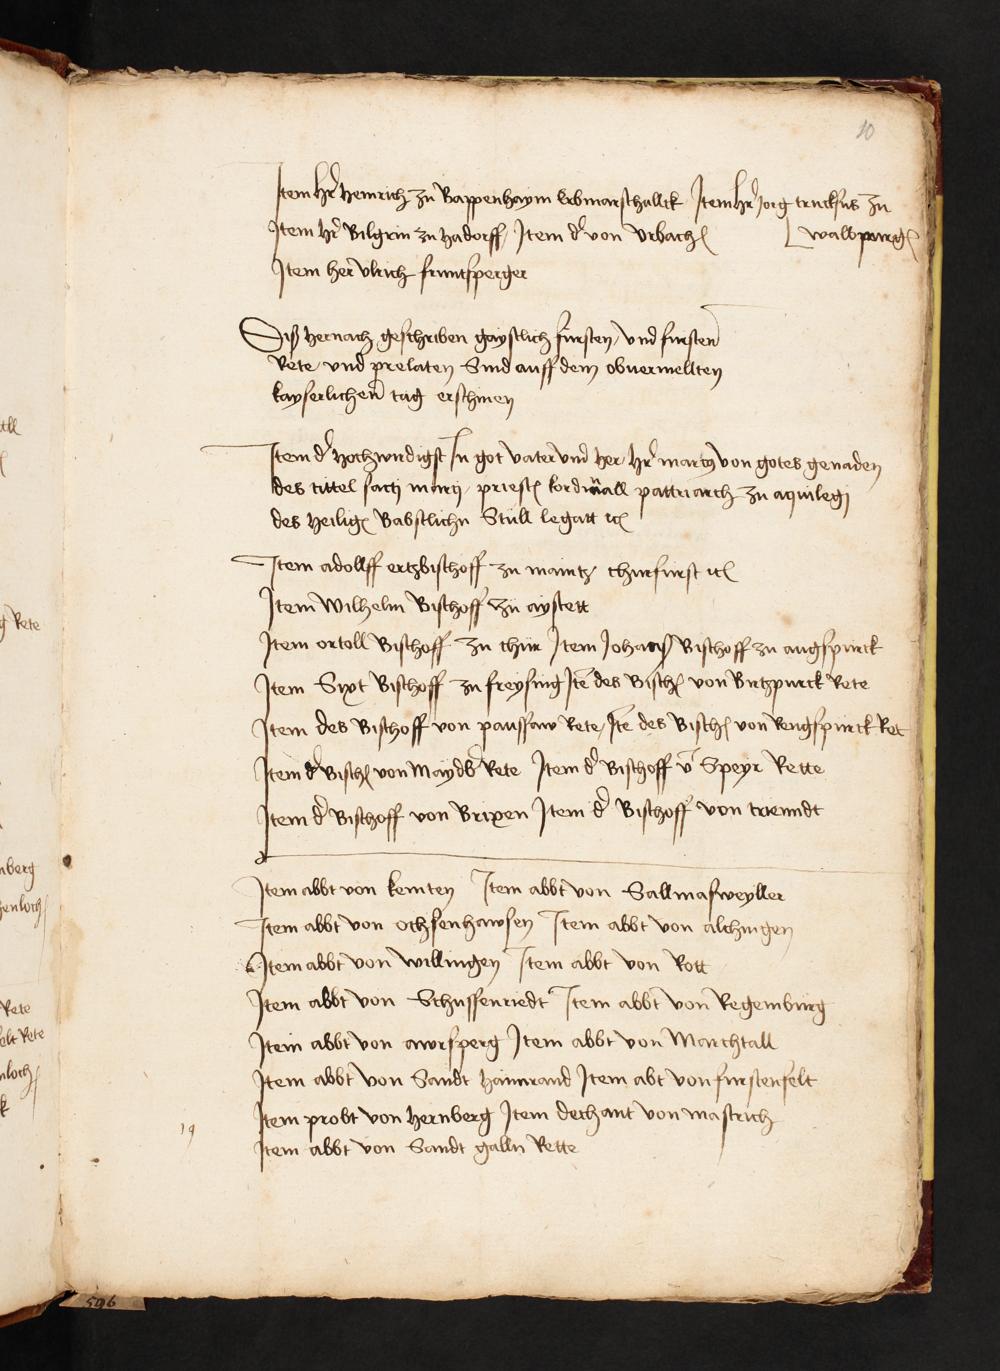 10
Item Hr Heinrich zu Bappenhaym Erbmarschallck Item Hr Jorg truckses zu
Item Hr Bilgrin zu Hadorff, Item dr von Urbach walbpurg
Item her Ulrich fruntsperger
Diß hernach geschriben gaystlich fursten, und fursten
Rete und prelaten Sind auff dem obuermellten
kayserlichen tag erschinen
Item dr Hochwirdigst In got vater und her Hr marx von gotes genaden
des tittel sacti marx, priestr kordinall pattriarch zu aquilegi
des Heilign Babstlichn Stull legatt etc
Item adollff ertzbischoff zu maintz churfurst etc
Item Wilhelm Bischoff zu aystett
Item ortoll Bischoff zu chur Item Johans Bischoff zu augspurck
Item Sixt Bischoff zu freysing Ite des Bischs von Birtzpurck Rete
Item des Bischoff von paussaw Rete, Ite des Bischs von Rengspurck Ret
Item dr Bischs von Maydb Rete Item dr Bischoff v Speyr Rette
Item dr Bischoff von Brixen Item dr Bischoff von trienndt
Item abbt von kemten Item abbt von Sallmasweyller
Item abbt von ochsenhawsen Item abbt von alchingen
Item abbt von willingen Item abbt von Rott
Item abbt von Schussenriedt Item abbt von Regemburg
Item abbt von awrsperg Item abbt von Marchtall
Item abbt von Sandt haimrand Item abt von furstenfelt
Item probt von Hernberg Item dechant von mastrich
Item abbt von Sandt galln Rette
19
Rete
nberg
Rete
elt Rete
nloch
596